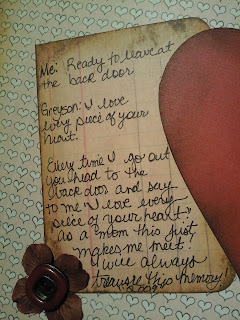 Me: Ready to leave at
the back door
Greyson: I love
every piece of your
heart.
Every time I go out
you head to the
back door and say
to me I love every
piece of your heart,
as a mom this just
makes me melt!
I will always
treasure this memory!
2009